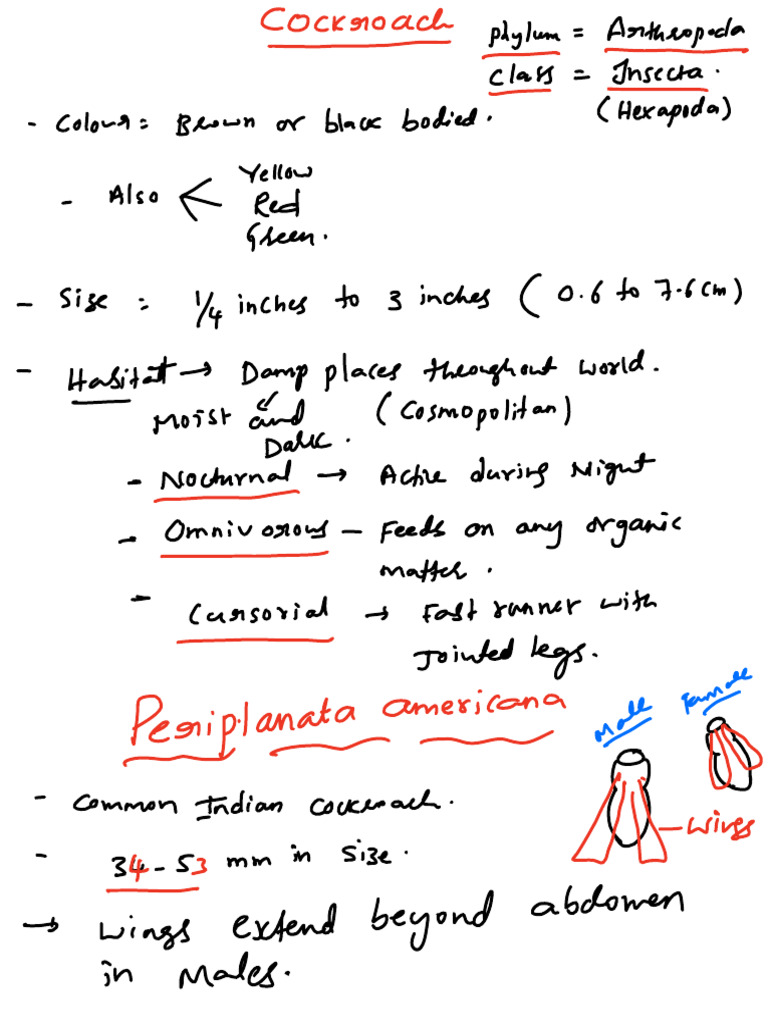 Cockroach
phylum = Arthropoda
class = Insecta.
(Hexapoda)
- Colour = Brown or black bodied.
- Also < Yellow
Red
Green.
- Size = 1/4 inches to 3 inches ( 0.6 to 7.6 cm)
- Habitat → Damp places throughout world.
Moist and (Cosmopolitan)
Dark.
- Nocturnal → Active during Night
- Omnivorous - Feeds on any organic
matter.
- Cursorial → Fast runner with
Jointed legs.
Periplanata americana
Male
Famale
- Common Indian cockroach.
wings
- 34-53 mm in size.
→ Wings extend beyond abdomen
in Males.